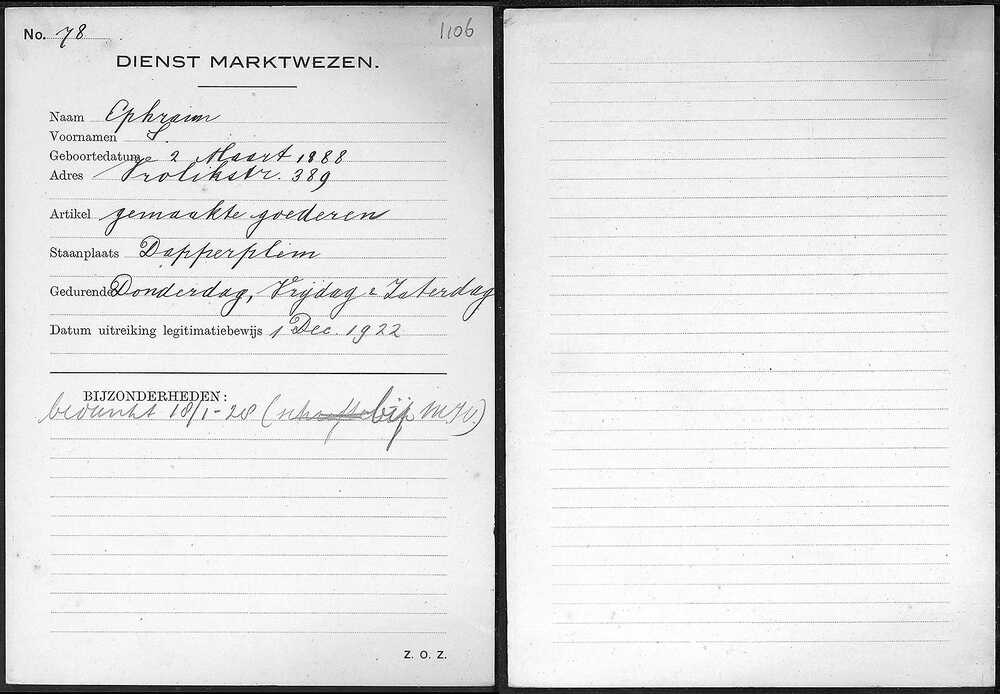 No. 78
1106
DIENST MARKTWEZEN.
Naam Ephraim
Voornamen S.
Geboortedatum 2 Maart 1888
Adres Vrolikstr. 389
Artikel gemaakte goederen
Staanplaats Dapperplein
Gedurende Donderdag, Vrijdag & Zaterdag
Datum uitreiking legitimatiebewijs 1 Dec. 1922
BIJZONDERHEDEN:
bedankt 18/1-28 ( bij M.W.)
Z. O. Z.